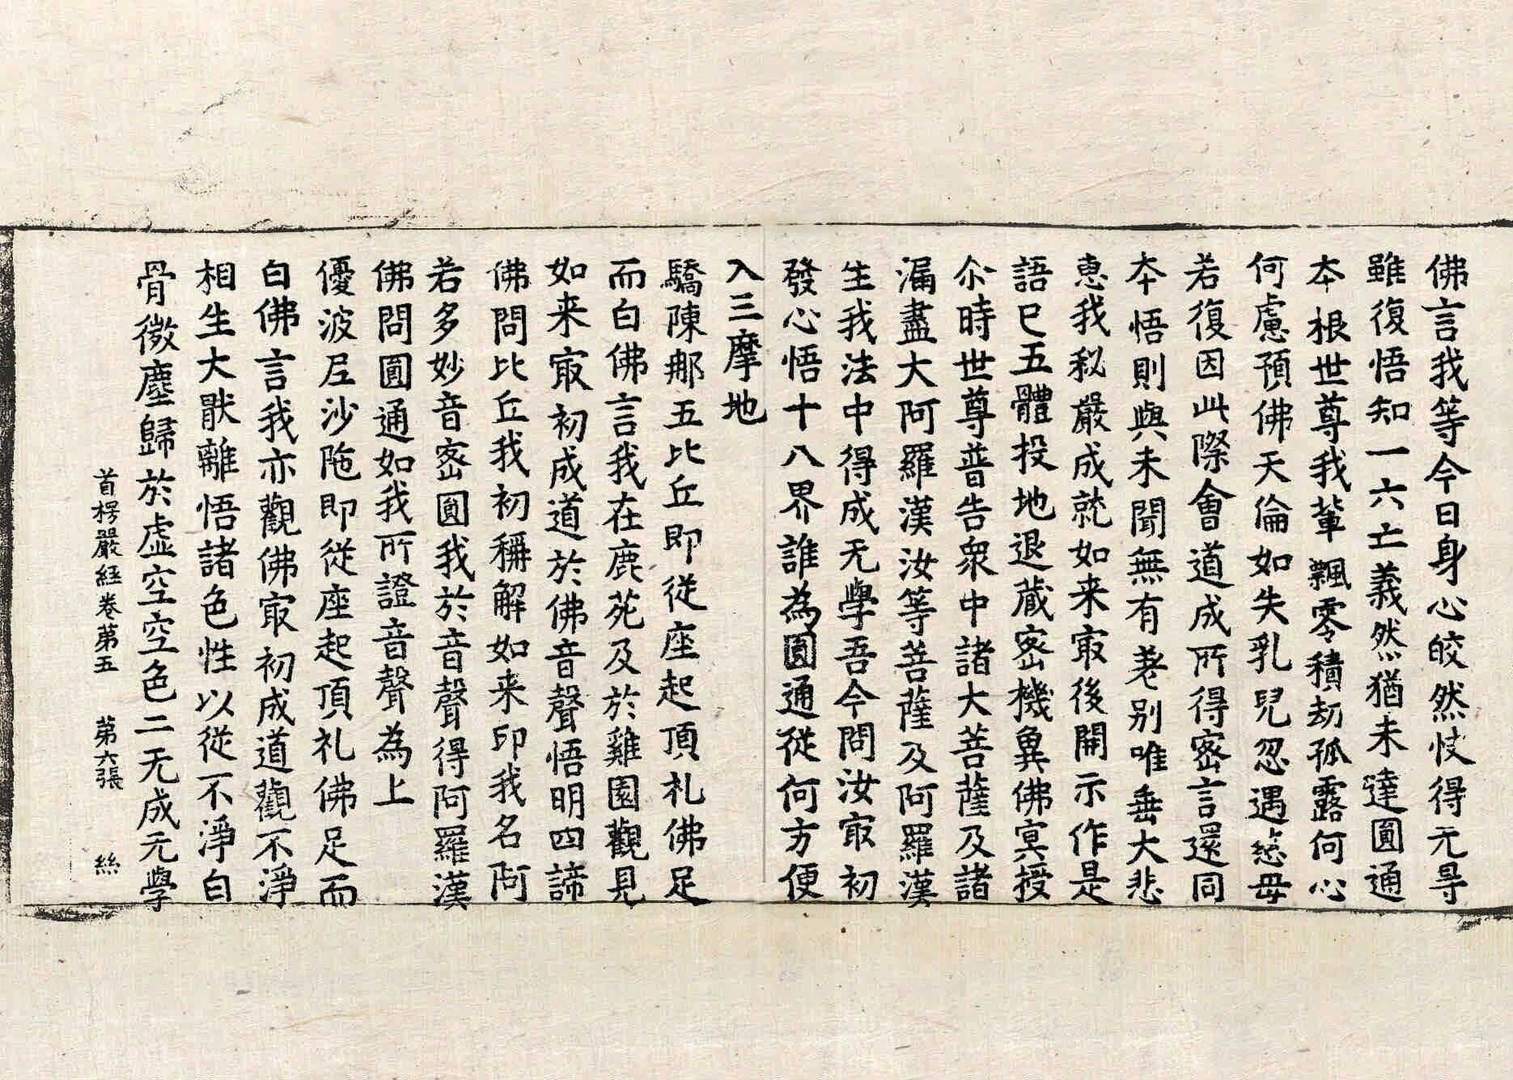 佛言我等今日身心皎然怾得无㝵
雖復悟知一六亡義然猶未達圓通
本根世尊我軰飄零積劫孤露何心
何慮預佛天倫如失乳兒忽遇慈母
若復因此際會道成所得密言還同
本悟則與未聞無有差别唯垂大悲
惠我秘嚴成就如来㝡後開示作是
語已五體投地退藏密機兾佛冥授
尒時世尊普告衆中諸大菩薩及諸
漏盡大阿羅漢汝等菩薩及阿羅漢
生我法中得成无學吾今問汝㝡初
發心悟十八界誰為圓通從何方便
入三摩地
驕陳那五比丘即從座起頂礼佛足
而白佛言我在鹿苑及於雞園觀見
如来㝡初成道於佛音聲悟明四諦
佛問比丘我初稱解如来印我名阿
若多妙音密圓我於音聲得阿羅漢
佛問圓通如我所證音聲為上
優波尼沙陁即從座起頂礼佛足而
白佛言我亦觀佛㝡初成道觀不淨
相生大猒離悟諸色性以從不淨白
骨微塵歸於虚空空色二无成无學
首楞嚴經卷第五 第六張 絲